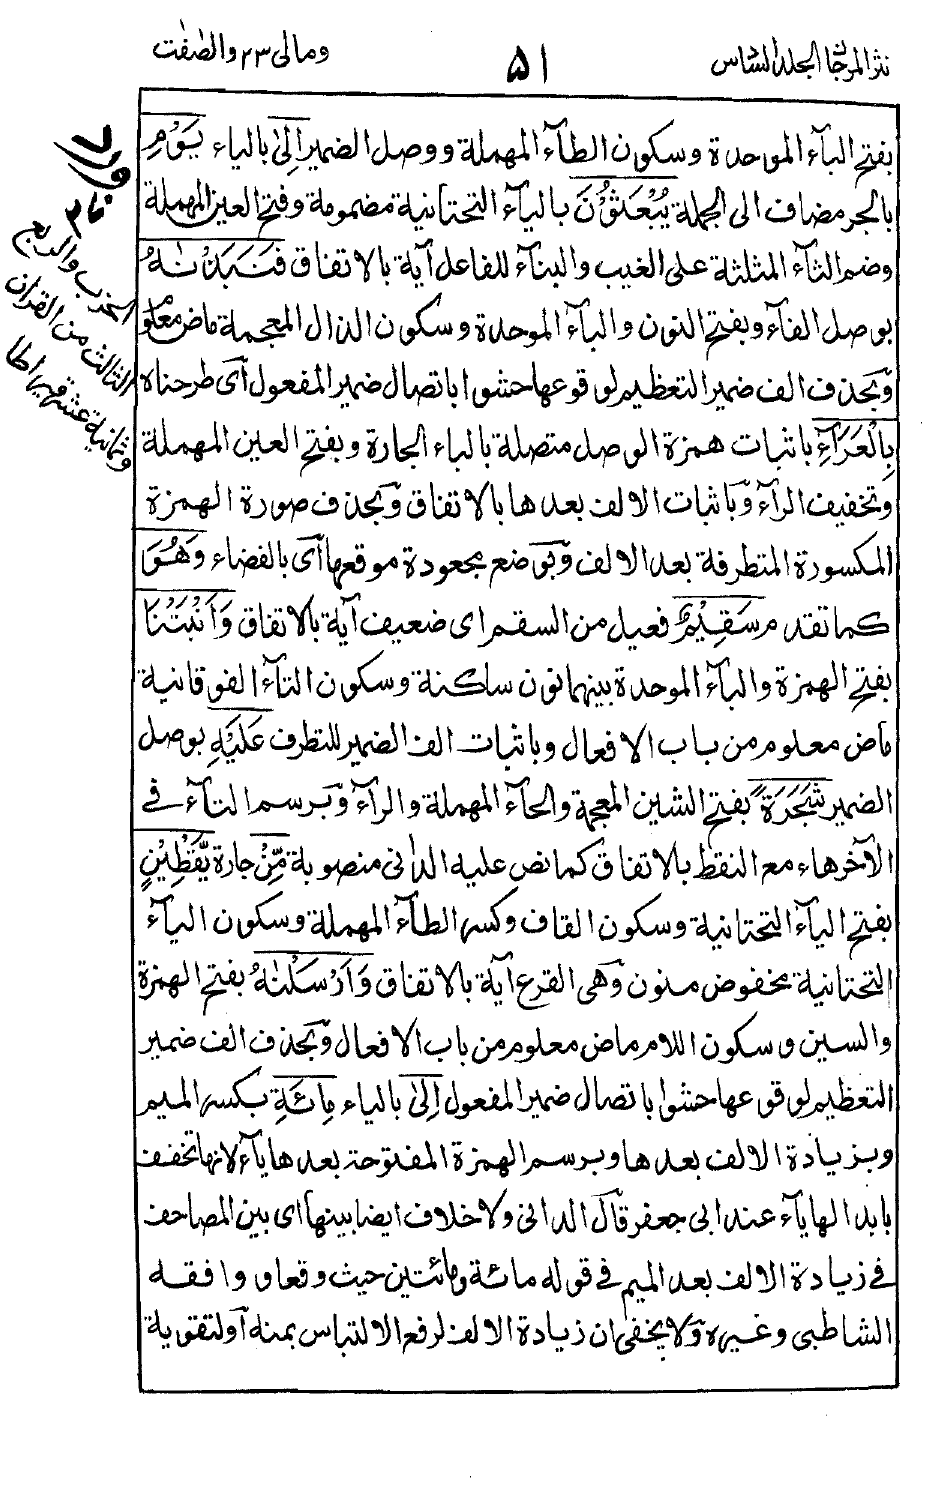 نثر المرجان الجلد السادس
٥١
ومالى ٢٣ والصفت
بفتح البآء الموحدة وسكون الطآء المهملة ووصل الضمير إِلىٰ بالياء يَوْمِ
بالجر مضاف الى الجملة يُبْعَثُوْنَ بالياۤء التحتانية مضمومة وفتح العين المهملة
وضم الثآء المثلثة على الغيب والبنآء للفاعل آية بالاتفاق فَنَبَذْنٰهُ
بوصل الفآء وبفتح النون والبآء الموحدة وسكون الذال المعجمة ماض معلوم
وبحذف الف ضمير التعظيم لوقوعها حشوا باتصال ضمير المفعول أى طرحناه
بِالْعَرَآءِ باثبات همزة الوصل متصلة بالباء الجارة وبفتح العين المهملة
وتخفيف الرآء وباثبات الالف بعدها بالاتفاق وبحذف صورة الهمزة
المكسورة المتطرفة بعد الالف وبوضع مجعودة موقعها أى بالفضاء وَهُوَ
كما تقدم سَقِيْمٌ فعيل من السقم اى ضعيف آية بالاتفاق وَاَنْبَتْنَا
بفتح الهمزة والبآء الموحدة بينهما نون ساكنة وسكون التآء الفوقانية
ماض معلوم من باب الافعال وباثبات الف الضمير للتطرف عَلَيْهِ بوصل
الضمير شَجَرَةً بفتح الشين المعجمة والحآء المهملة والرآء وبرسم التآء فى
الآخرهاء مع النقط بالاتفاق كما نص عليه الدانى منصوبة مِّنْ جارة يَّقْطِيْنٍ
بفتح الياۤء التحتانية وسكون القاف وكسر الطآء المهملة وسكون الياۤء
التحتانية مخفوض منون وهى القرع آية بالاتفاق وَاَرْسَلْنٰهُ بفتح الهمزة
والسين وسكون اللام ماض معلوم من باب الافعال وبحذف الف ضمير
التعظيم لوقوعها حشوا باتصال ضمير المفعول اِلىٰ بالياء مِائَةِ بكسر الميم
وبزيادة الالف بعدها وبرسم الهمزة المفتوحة بعدها ياۤء لانها تخفف
بابدالها ياۤء عند ابى جعفر قال الدانى ولا خلاف ايضا بينها اى بين المصاحف
فى زيادة الالف بعد الميم فى قوله مائة ومائتين حيث وقعا ووافقه
الشاطبى وغيره ولا يخفى ان زيادة الالف لرفع الالتباس بمنه أو لتقوية
الحزب والربع
الثالث من القران
وثمانية عشر قيراطا